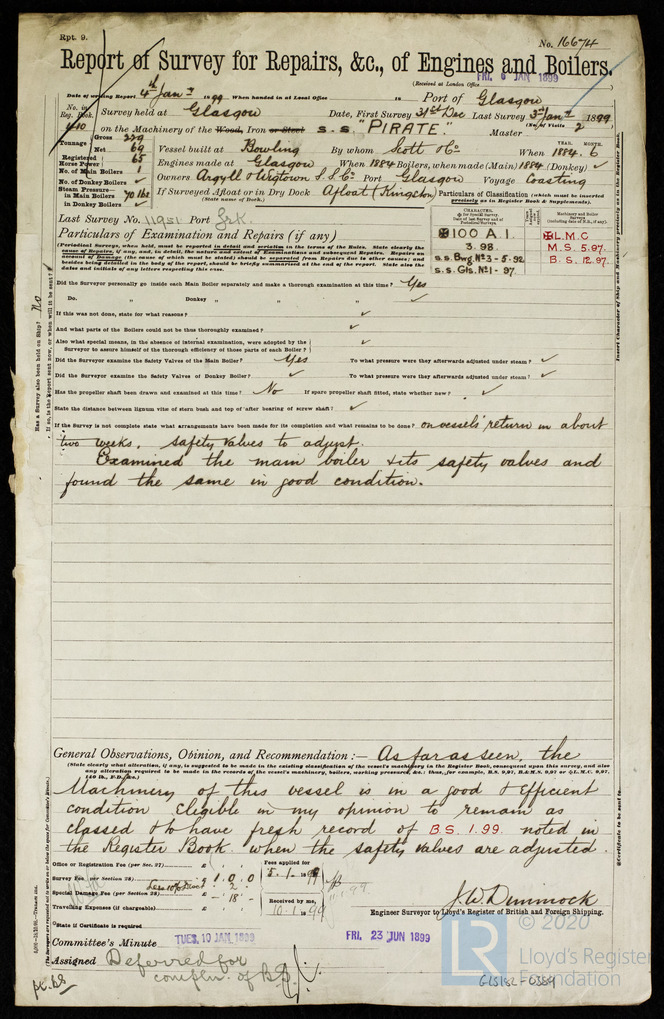 Rpt. 9.
No. 16674
Report of Survey for Repairs, &c., of Engines and Boilers.
(Received at London Office
FRI. 6 JAN 1899
Date of writing Report 4th Jany 1899 When handed in at Local Office 18 Port of Glasgow
No. in Reg. Book.
410
Survey held at Glasgow Date, First Survey 31st Dec Last Survey 3rd Jany 1899
(No. of Visits 2
on the Machinery of the Wood, Iron or Steel S.S. "PIRATE." Master
Tonnage Gross 229
Net 69
Vessel built at Bowling By whom Scott & Co When YEAR. 1884. MONTH. 6
Registered Horse Power 65
Engines made at Glasgow When 1884 Boilers, when made (Main) 1884 (Donkey) ✓
No. of Main Boilers 1
No. of Donkey Boilers ✓
Owners Argyll & Wigtown S.S. Co Port Glasgow Voyage Coasting
Steam Pressure—
in Main Boilers 70 lbs
in Donkey Boilers ✓
If Surveyed Afloat or in Dry Dock Afloat (Kingston)
(State name of Dock.)
Particulars of Classification (which must be inserted precisely as in Register Book & Supplements).
Last Survey No. 11951 Port Grk.
CHARACTER.
✠ for Special Survey.
Date of last Survey and of Periodical Surveys.
Machinery and Boiler Surveys
(including date of N.B., if any).
✠100 A.1.
3.98.
s.s. Bwg. No. 3-5.92
s.s. Gls. No. 1-97.
✠L.M.C
M.S. 5.97.
B.S. 12.97.
Particulars of Examination and Repairs (if any)
(Periodical Surveys, when held, must be reported in detail and seriatim in the terms of the Rules. State clearly the
cause of Repairs, if any, and, in detail, the nature and extent of Examinations and subsequent Repairs. Repairs on
account of Damage (the cause of which must be stated) should be separated from Repairs due to other causes; and
besides being detailed in the body of the report, should be briefly summarised at the end of the report. State also the
dates and initials of any letters respecting this case.
Did the Surveyor personally go inside each Main Boiler separately and make a thorough examination at this time? Yes
Do. " Donkey " " " ✓
If this was not done, state for what reasons? ✓
And what parts of the Boilers could not be thus thoroughly examined? ✓
Also what special means, in the absence of internal examination, were adopted by the
Surveyor to assure himself of the thorough efficiency of those parts of each Boiler? ✓
Did the Surveyor examine the Safety Valves of the Main Boiler? Yes To what pressure were they afterwards adjusted under steam? ✓
Did the Surveyor examine the Safety Valves of Donkey Boiler? ✓ To what pressure were they afterwards adjusted under steam? ✓
Has the propeller shaft been drawn and examined at this time? No If spare propeller shaft fitted, state whether new? ✓
State the distance between lignum vitæ of stern bush and top of after bearing of screw shaft? ✓
If the Survey is not complete state what arrangements have been made for its completion and what remains to be done? on vessels' return in about
two weeks. safety valves to adjust.
Examined the main boiler & its safety valves and
found the same in good condition.
Has a Survey also been held on Ship? No
If so, is the Report sent now, or when will it be sent?
Insert Character of Ship and Machinery precisely as in the Register Book.
General Observations, Opinion, and Recommendation:— As far as seen, the
(State clearly what alteration, if any, is suggested to be made in the existing classification of the vessel's machinery in the Register Book, consequent upon this survey, and also
any alteration required to be made in the records of the vessel's machinery, boilers, working pressures, &c.; thus, for example, B.S. 9,97, B.&M.S. 9,97 or ✠L.M.C. 9,97,
140 lb., F.D. &c.)
Machinery of this vessel is in a good & efficient
condition eligible in my opinion to remain as
classed & to have fresh record of B.S. 1.99. noted in
the Register Book when the safety valves are adjusted.
Office or Registration Fee (per Sec. 27) £ : :
Survey Fee (per Section 28) £ 1 . 0 . 0
Less 10% Disct 2
Special Damage Fee (per Section 28) £ - 18 -
Travelling Expenses (if chargeable) £ : :
Fees applied for
5.1.1899
Received by me,
10.1.1899
J. W. Dimmock
Engineer Surveyor to Lloyd's Register of British and Foreign Shipping.
State if Certificate is required
Certificate to be sent to
Committee's Minute TUES. 10 JAN 1899 FRI. 23 JUN 1899
Assigned Deferred for
compln. of B.S.
© 2020
LR
Lloyd's Register
Foundation
GLS182-0384